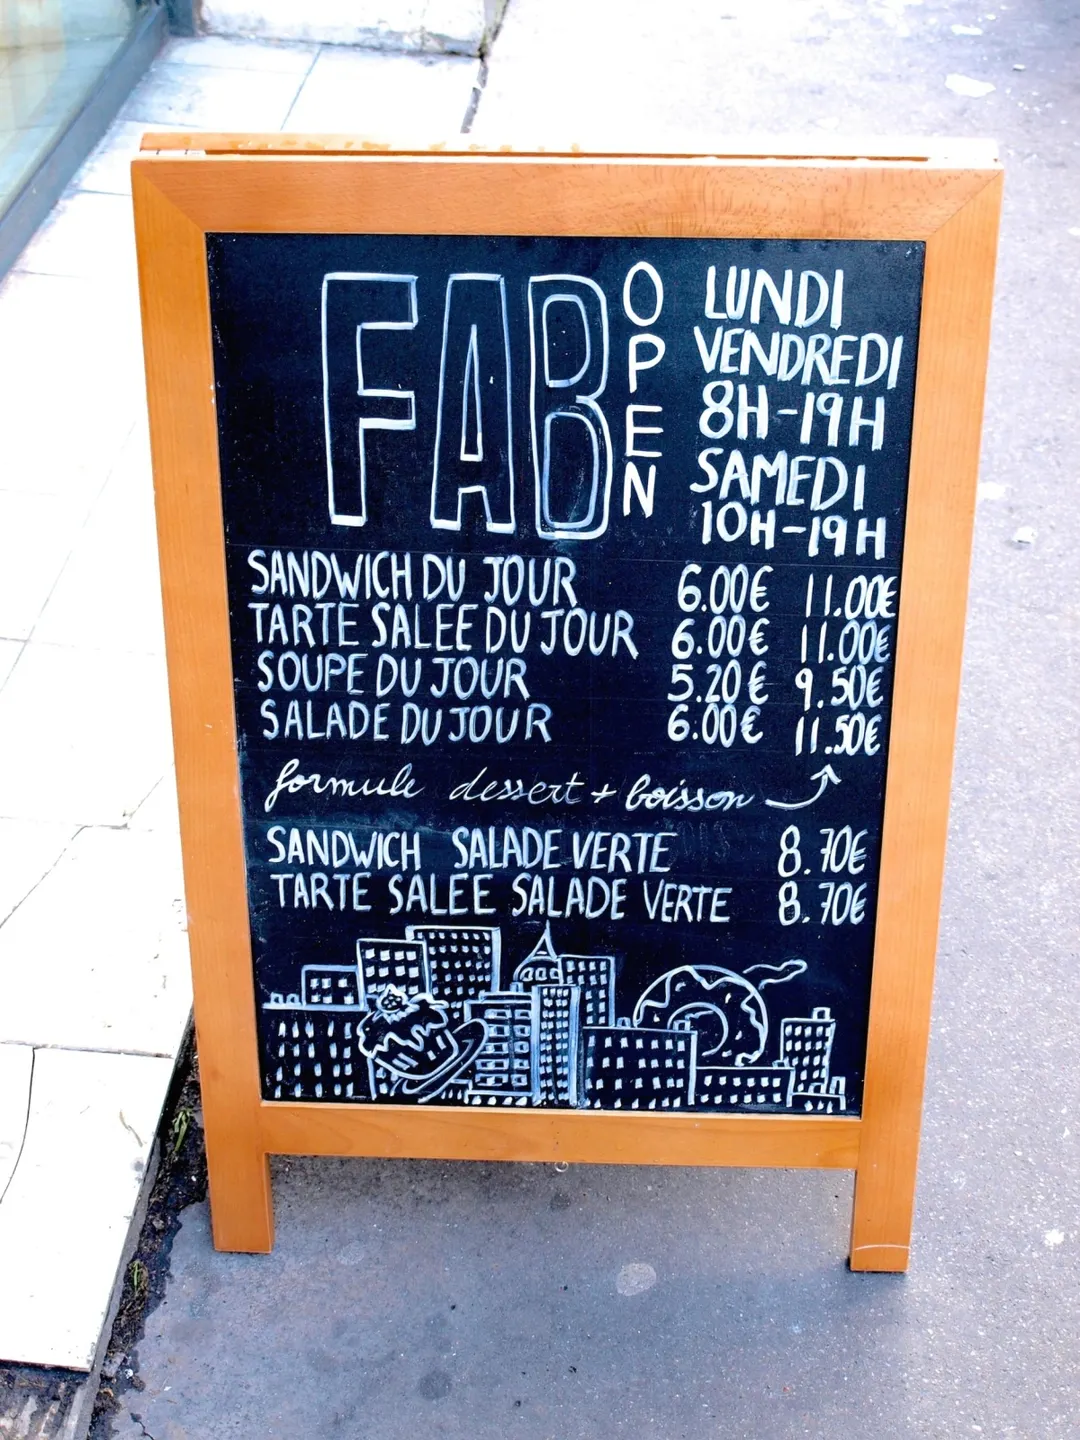 FAB
OPEN
LUNDI
VENDREDI
8H-19H
SAMEDI
10H-19H
SANDWICH DU JOUR 6.00€ 11.00€
TARTE SALEE DU JOUR 6.00€ 11.00€
SOUPE DU JOUR 5.20€ 9.50€
SALADE DU JOUR 6.00€ 11.50€
formule dessert + boisson
SANDWICH SALADE VERTE 8.70€
TARTE SALEE SALADE VERTE 8.70€